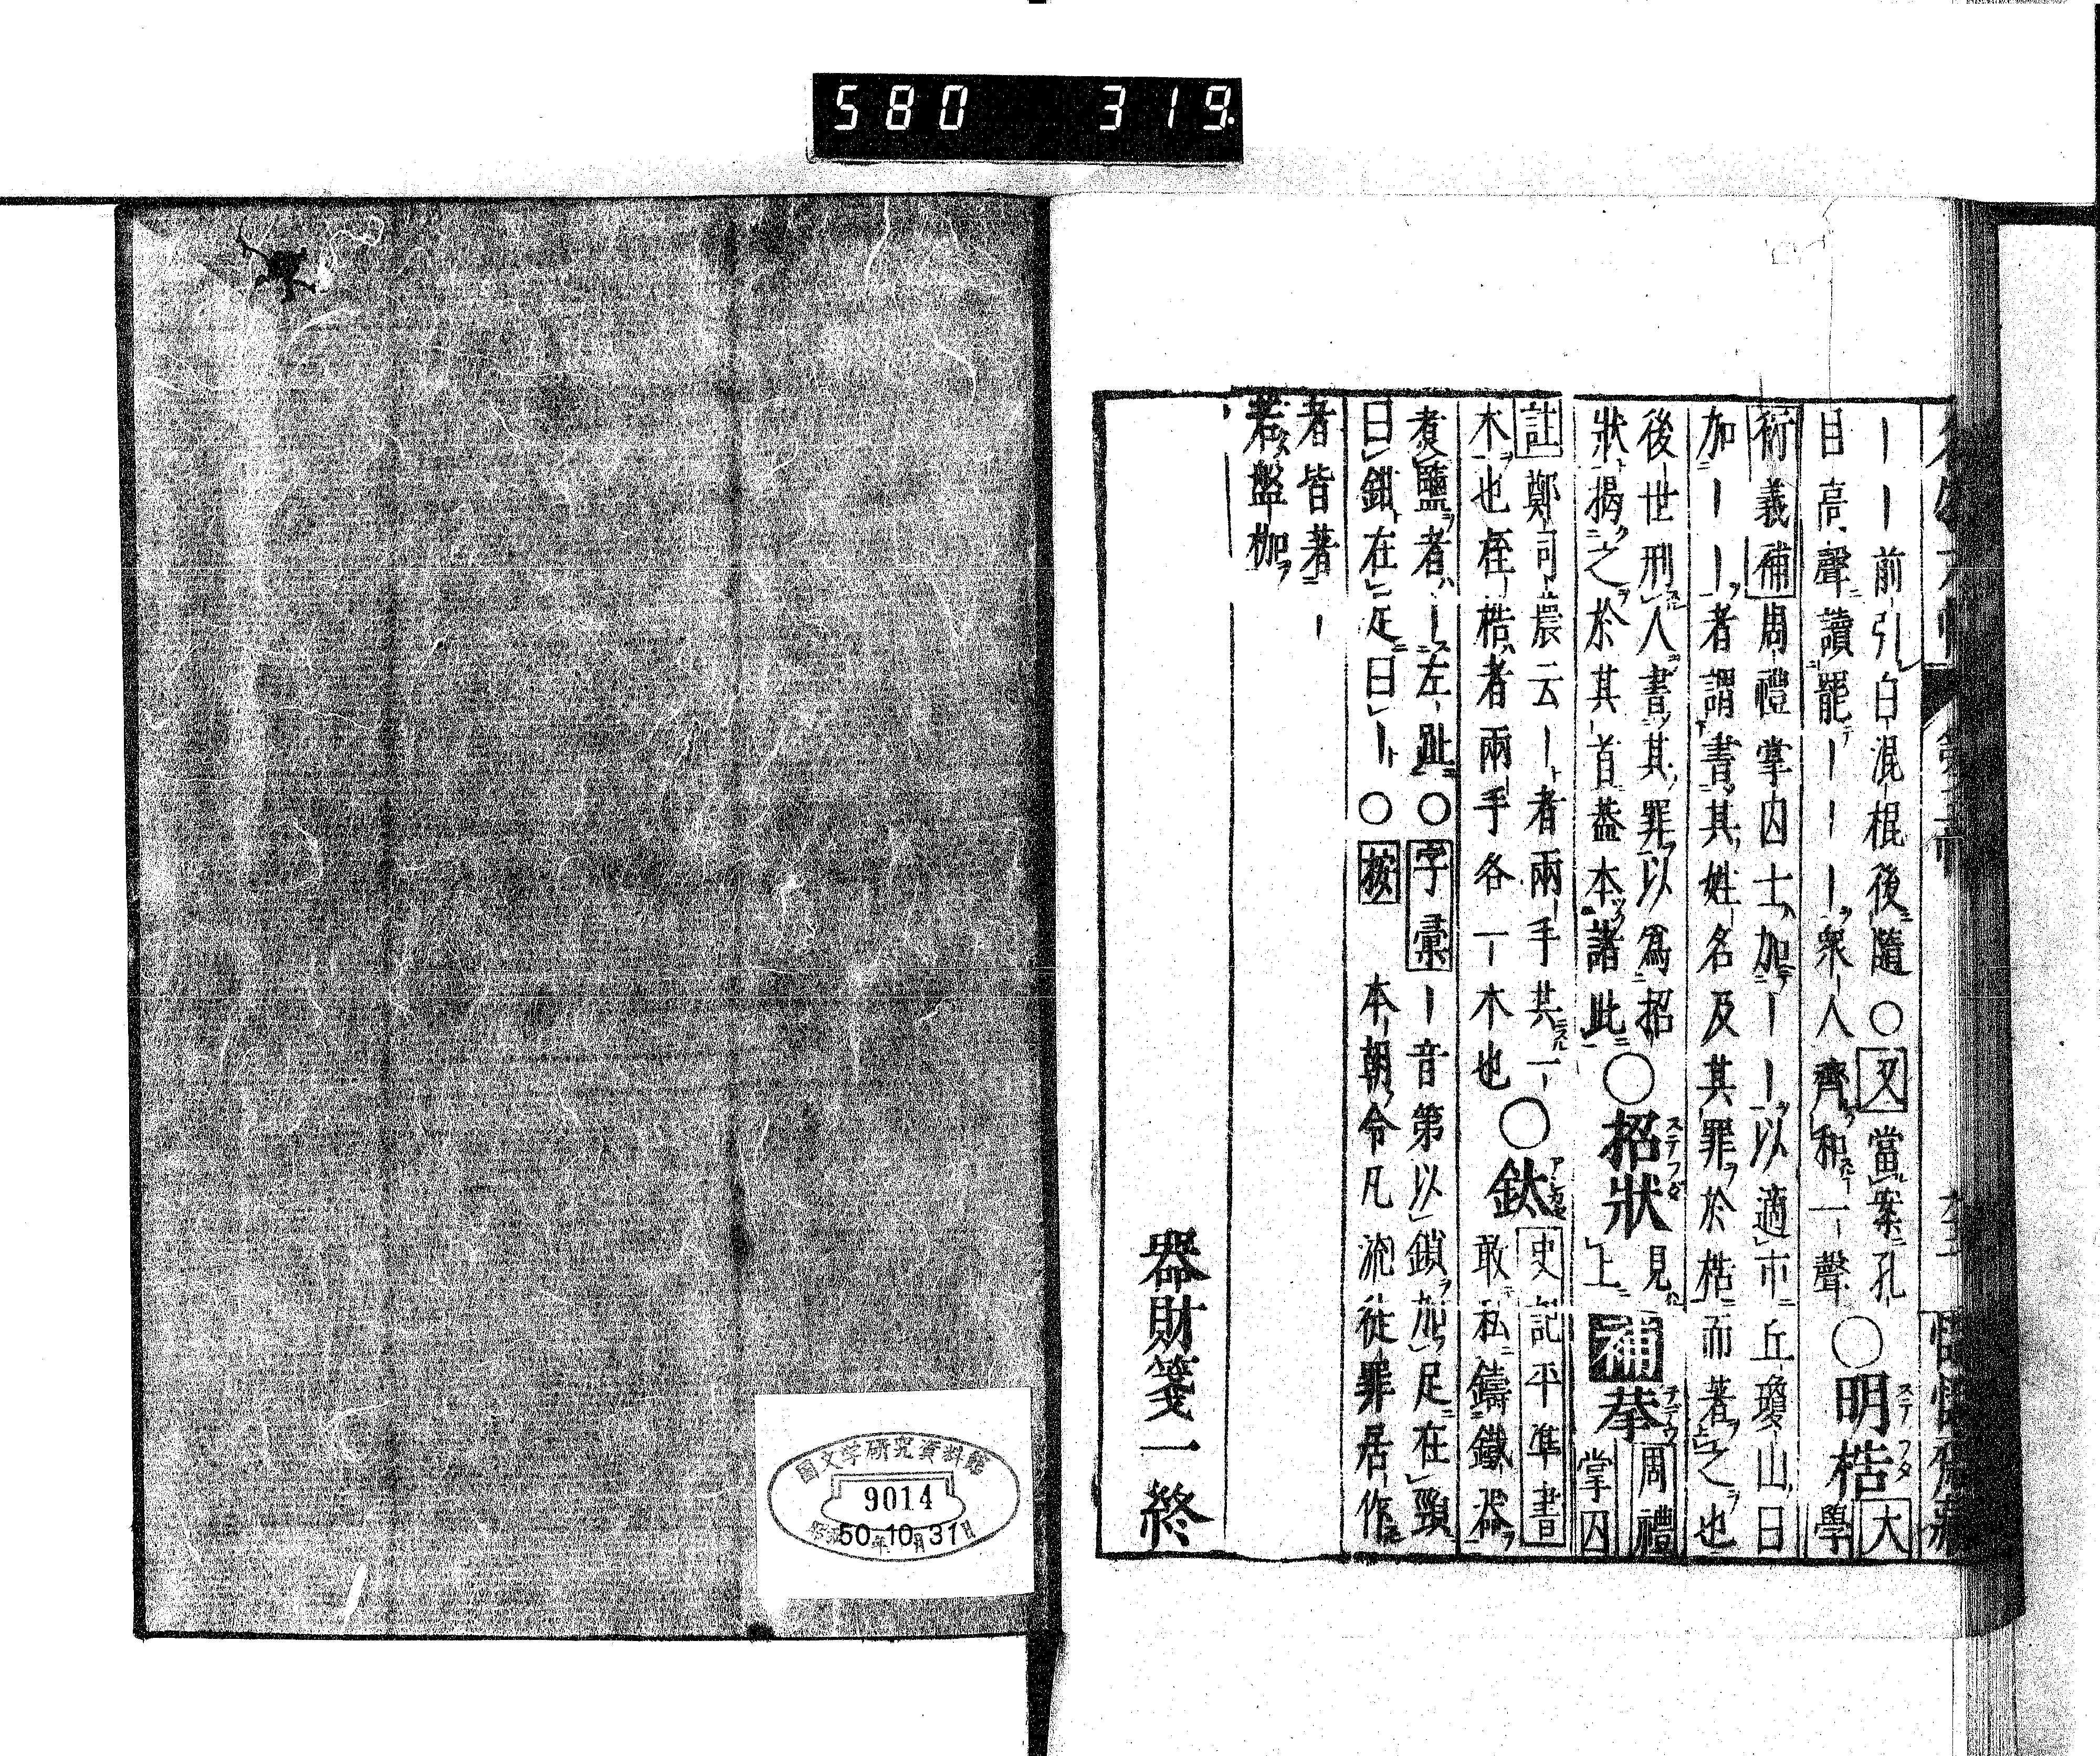 580 319
｜｜前引白混棍後隨○又當案孔
目高聲讀罷｜｜｜衆人齊和一聲○明梏大學
ステフダ
衍義補周禮掌囚士加｜｜以適市丘瓊山曰
加｜｜者謂書其姓名及其罪於梏而著之也
後世刑人書其罪以爲招
狀揭之於其首蓋本諸此○招狀見上補拲周禮掌囚
ステフダ
註鄭司農云｜者兩手共一
木也桎梏者兩手各一木也○釱史記平準書敢私鑄鐵器
煮鹽者｜左趾○字彙｜音第以鎖加足在頸
曰鉗在足曰｜○按 本朝令凡流徒罪居作
者皆著｜
若盤枷
器財箋一終
國文学研究資料館
9014
50年10月31日